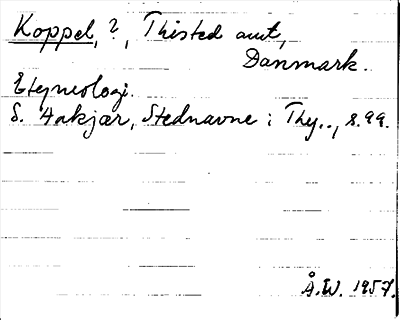 Koppel, ?, Thisted amt,
Danmark.
Etymologi.
S. Aakjær, Stednavne i Thy.., s.99.
Å.W. 1957.